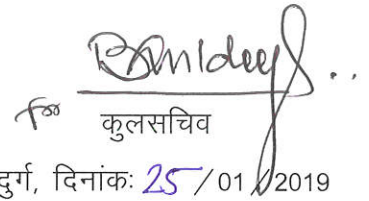 for
कुलसचिव
दुर्ग, दिनांकः 25/01/2019